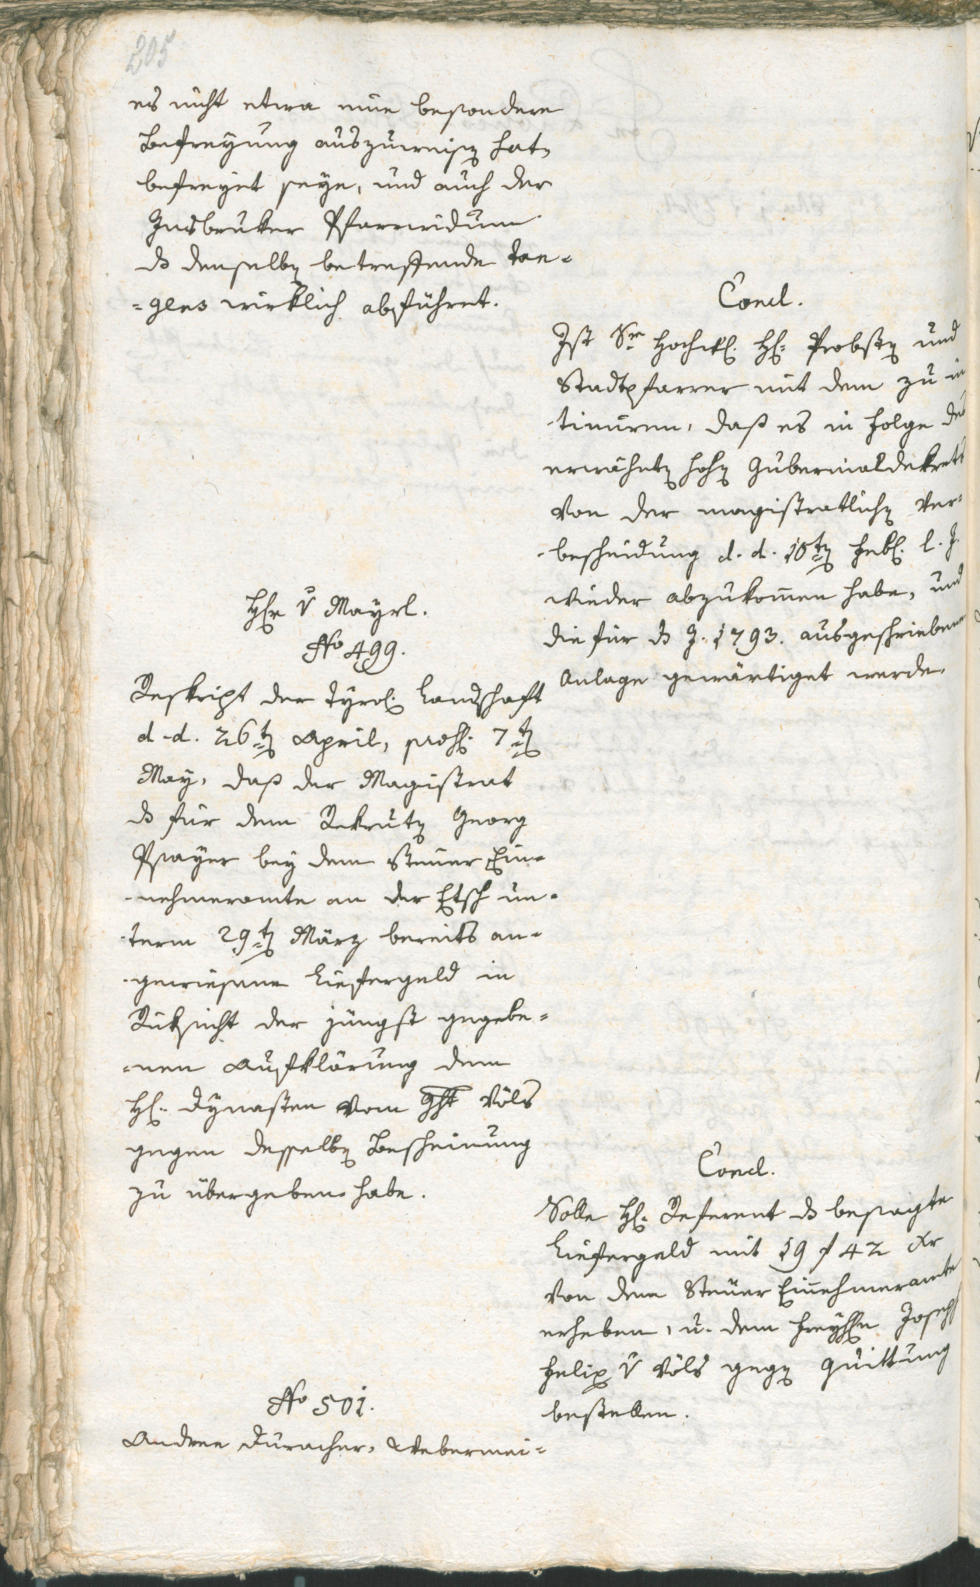 205
es nicht etwa eine besondere
Befreyung auszuweisen hat,
befreyet seye, und auch der
Insbruker Pfarrwidum
ds denselben betreffende Tan=
=gens wirklich abführet.
Concl.
Ist Sr Hochw. H. Probsten und
Stadtpfarrer mit dem zu in
timiren, daß es in Folge des
erwähnten hohen Gubernialdekrets
von der magistratlichen Ver=
bescheidung d. d. 18ten Feb. l. J.
wieder abzukommen habe, und
die für ds J. 1793. ausgeschriebene
Anlage gewärtiget werde.
Hr v Mayrl.
No 499.
Reskript der Tyrol. Landschaft
d. d. 26ten April, pros. 7ten
May, daß der Magistrat
ds für dem Rekruten Georg
Psayer bey dem Steuer Ein=
nehmeramte an der Etsch un=
term 29ten März bereits an=
gewiesene Liefergeld in
Rüksicht der jüngst gegebe=
=nen Aufklärung dem
H. Dynasten vom Völs
gegen desselben Bescheinung
zu übergeben habe.
Concl.
Solle H. Referent ds besagte
Liefergeld mit 19 f 42 xr
von dem Steuer Einnehmeramte
erheben, u. dem Freyhn Joseph
Felix v Völs gegen Quittung
bestellen.
No 501.
Andree Duracher, Webermei=